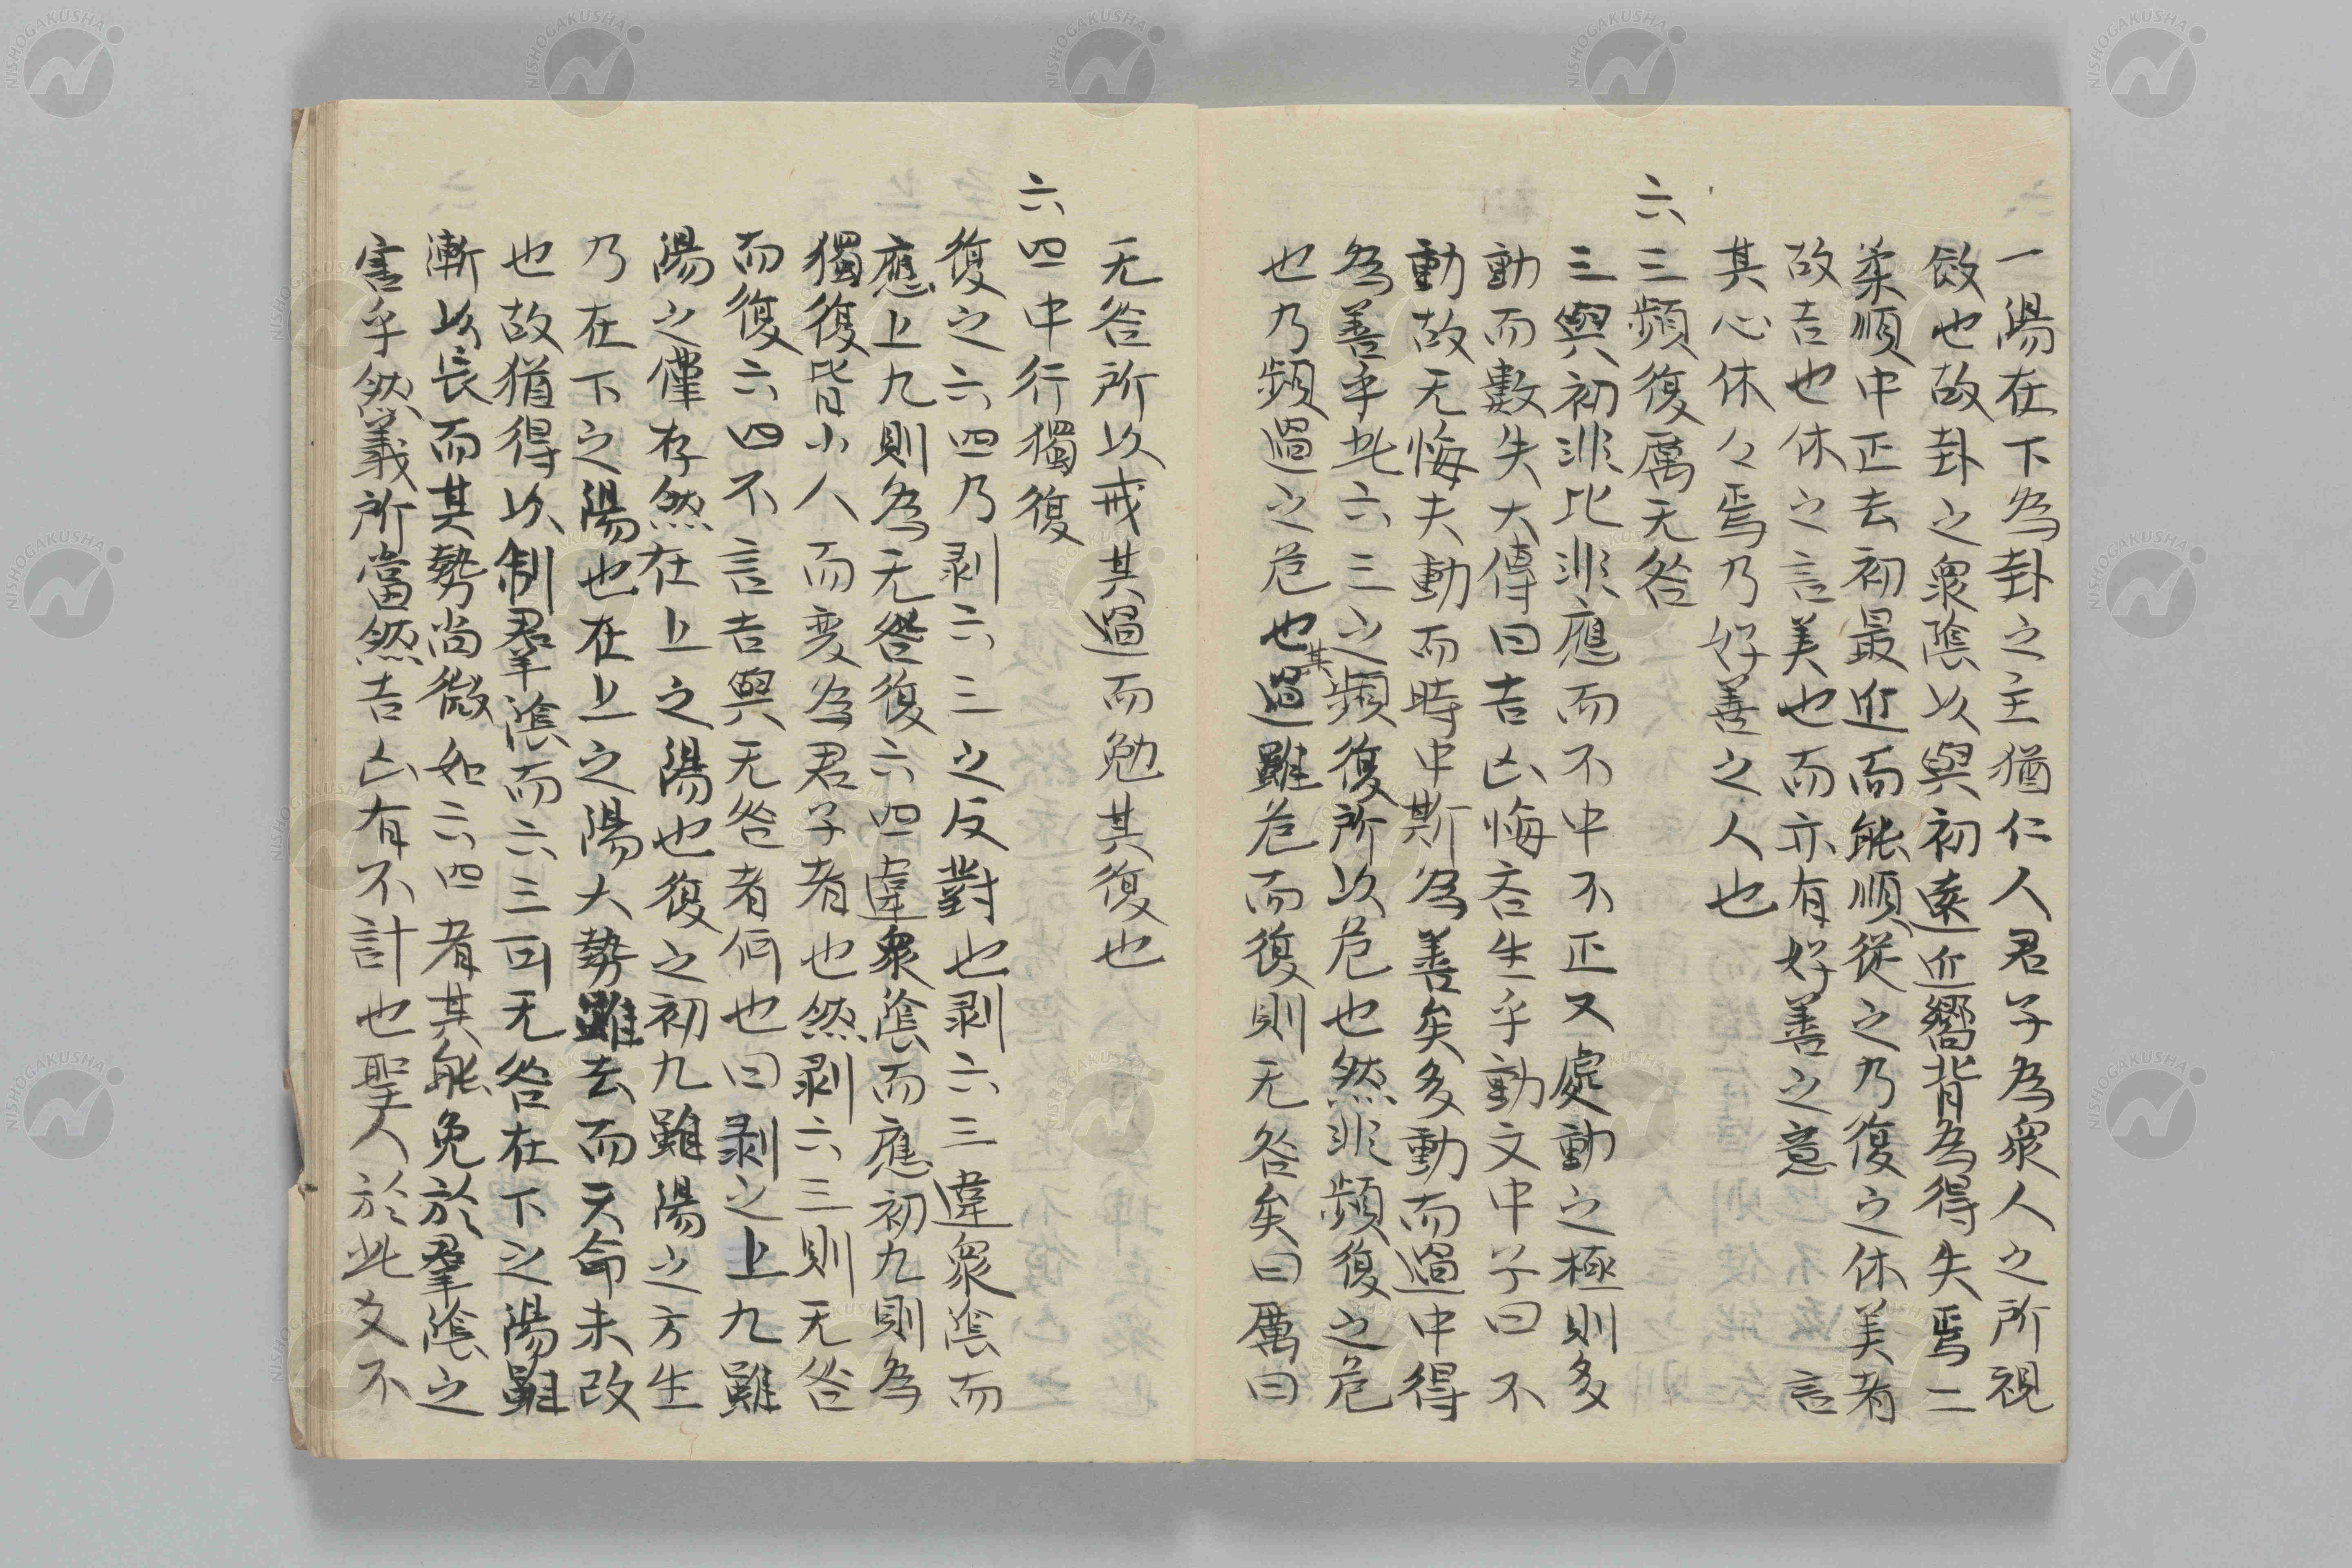 一陽在下為卦之主猶仁人君子為衆人之所視
效也故卦之衆陰以與初遠近嚮背為得失焉二
柔順中正去初最近而能順從之乃復之休美者
故吉也休之言美也而亦有好善之意 言
其心休々焉乃好善之人也
六三頻復厲无咎
三與初非比非應而不中不正又處動之極則多
動而數失大傳曰吉凶悔吝生乎動文中子曰不
動故无悔夫動而時中斯為善矣多動而過中得
為善乎此六三之頻復所以危也然非頻復之危
也乃頻過之危也其過雖危而復則无咎矣曰厲曰
无咎所以戒其過而勉其復也
六四中行獨復
復之六四乃剥六三之反對也剥六三違衆陰而
應上九則為无咎復六四違衆陰而應初九則為
獨復皆小人而変為君子者也然剥六三則无咎
而復六四不言吉與无咎者何也曰剥之上九雖
陽之僅存然在上之陽也復之初九雖陽之方生
乃在下之陽也在上之陽大勢雖去而天命未改
也故猶得以制羣陰而六三可无咎在下之陽雖
漸以長而其勢尚微如六四者其能免於羣陰之
害乎然義所當然吉凶有不計也聖人於此爻不